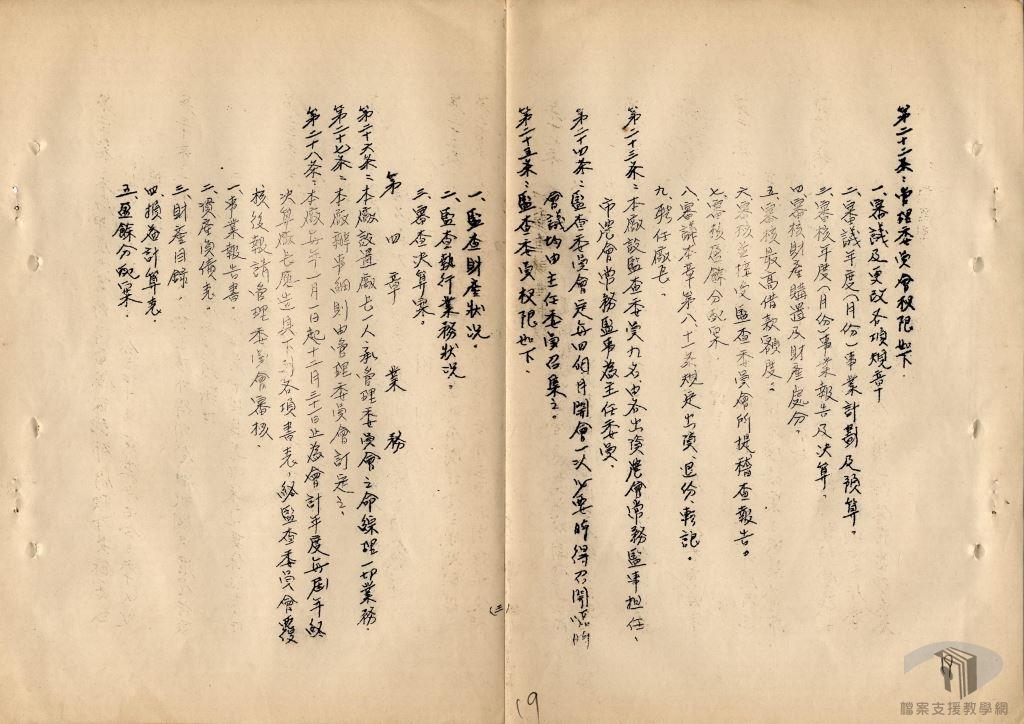 第二十二条：管理委員會权限如下．
一.審議及更改各項規章
二.審議年度(月份)事業計劃及預算．
三.審核年度(月份)事業報告及決算．
四.審核財產購置及財產處分．
五.審核最高借款額度．
六.審核並接受監查委員會所提稽查報告。
七.審核盈餘分配案
八.審議本章第八十条規定出資、退份、転記。
九.聘任廠長．
第二十三条：本廠設監查委員九名由各出資農會常務監事担任．
市農會常務監事為主任委員．
第二十四条：監查委員會定每四個月開會一次必要時得召開臨時
會議均由主任委員召集之。
第二十五条：監查委員权限如下．
一.監查財產狀況。
二.監查執行業務狀況。
三.審查決算案。
第四章 業務
第二十六条：本廠設置廠長一人、承管理委員會之命綜理一切業務．
第二十七条：本廠辦事細則由管理委員會訂定之．
第二十八条：本廠每年一月一日起十二月三十一日止為會計年度每屆年終
決算廠長應造具下列各項書表，経監查委員會覆
核後報請管理委員會審核．
一.事業報告書．
二.資產負債表．
三.財產目錄．
四.損益計算表．
五.盈餘分配案．
(三)
19
檔案支援教學網